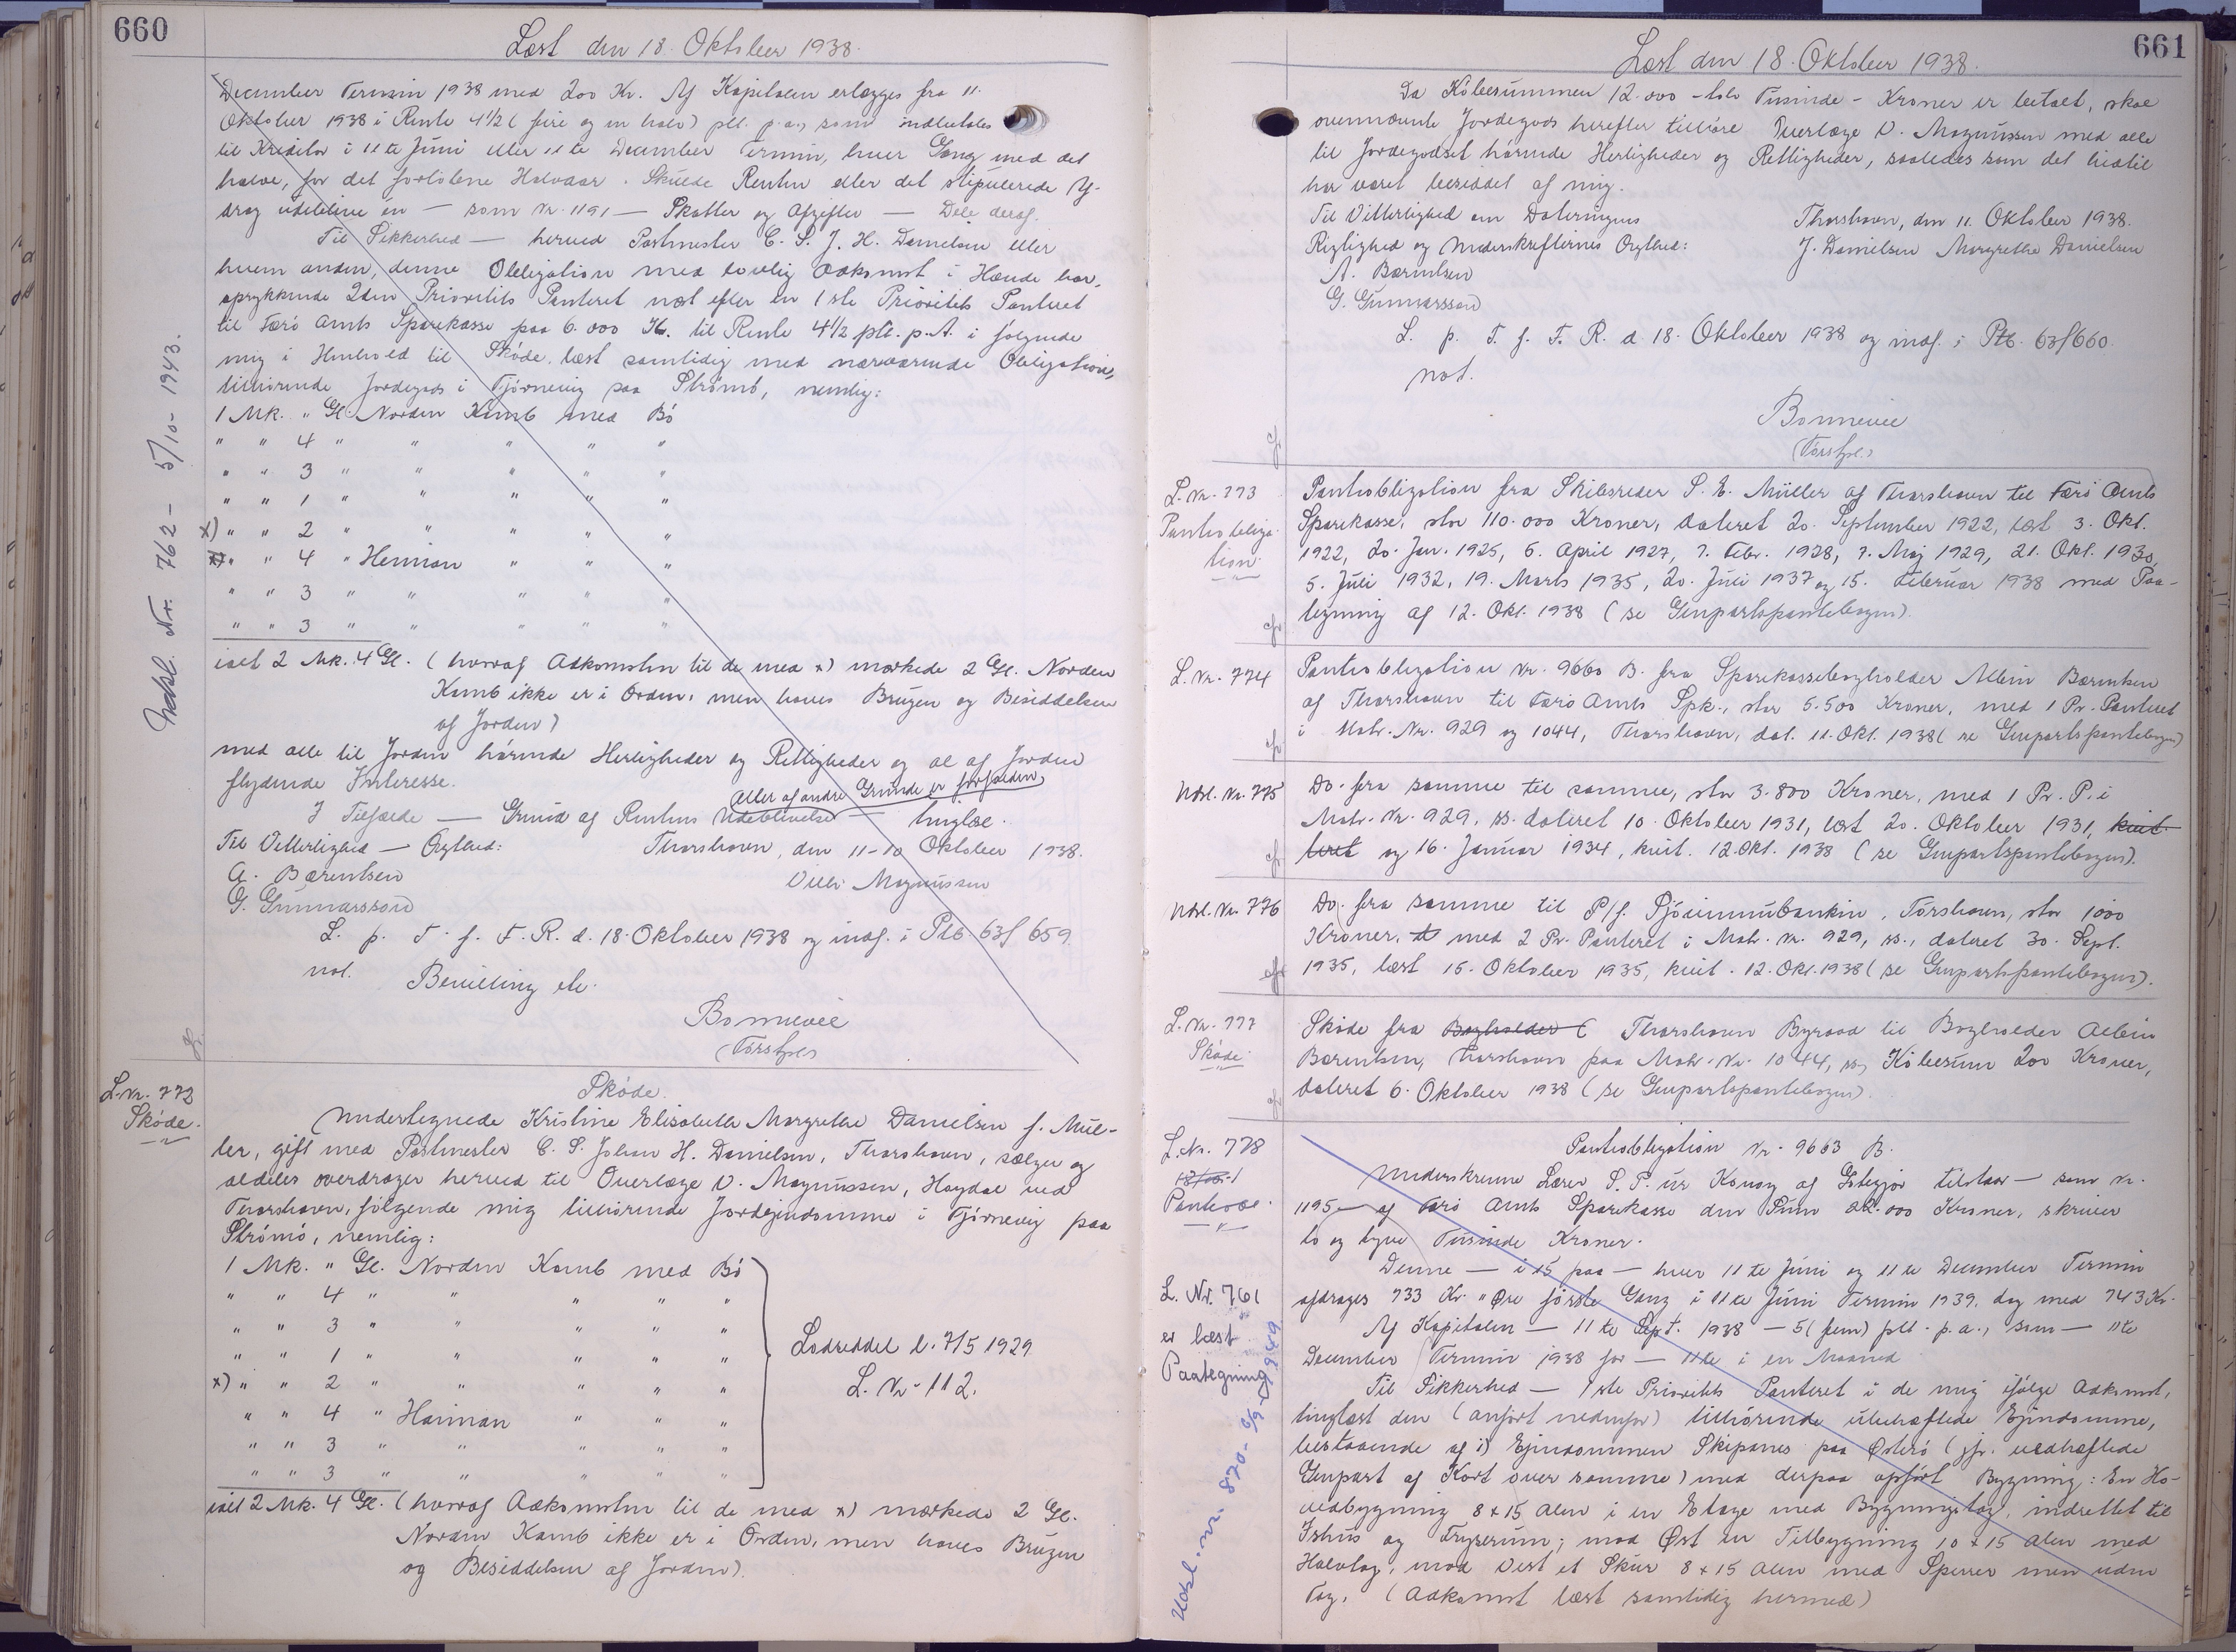 660
Læst den 18. Oktober 1938.
December Termin 1938 med 200 Kr. Af Kapitalen erlægges fra 11.
Oktober 1938 i Rente 4½ (fire og en halv) pct. p.a., som indbetales
til Kreditor i 11te Juni eller 11te December Termin, hver Gang med det
halve, for det forløbne Halvaar. Skulde Renten eller det stipulerede Af-
drag udeblive én — som Nr. 1191 — Skatter og Afgifter — Dele deraf.
Til Sikkerhed — herved Postmester C. S. J. H. Danielsen eller
hvem anden, denne Obligation med lovlig Adkomst i Hænde har,
oprykkende 2den Prioritets Panteret næst efter en 1ste Prioritets Panteret
til Færø Amts Sparekasse paa 6.000 Kr. til Rente 4½ pct. p.A. i følgende
mig i Henhold til Skøde læst samtidig med nærværende Obligation,
tilhørende Jordegods i Tjørnevig paa Strømø, nemlig:
1 Mk. " Gl. Norden Kamb med Bø
" " 4 " " " " "
" " 3 " " " " "
" " 1 " " " " "
x) " " 2 " " " " "
" " 4 " Heiman " " "
" " 3 " " " " "
" " 3 " " " " "
ialt 2 Mk. 4 Gl. (hvoraf Adkomsten til de med x) mærkede 2 Gl. Norden
Kamb ikke er i Orden, men haves Brugen og Besiddelsen
af Jorden)
med alle til Jorden hørende Herligheder og Rettigheder og al af Jorden
flydende Interesse.
eller af andre Grunde er forfalden,
I Tilfælde — Grund af Rentens Udeblivelse — tinglæse.
Til Vitterlighed — Ægthed: Thorshavn, den 11-10 Oktober 1938.
A. Bærentsen Villi Magnussen
G. Gunnarsson
L. p. T. f. F. R. d. 18. Oktober 1938 og indf. i Ptb. 63 f 659.
not. Bevilling etc.
Bonnevie
Udsl. Nr. 762 - 5/10 - 1943.
L. Nr. 772
Skøde.
Skøde.
Undertegnede Kristine Elisabeth Margrethe Danielsen f. Mül-
ler, gift med Postmester C. S. Johan H. Danielsen, Thorshavn, sælger og
aldeles overdrager herved til Overlæge V. Magnussen, Hoydal ved
Thorshavn, følgende mig tilhørende Jordejendomme i Tjørnevig paa
Strømø, nemlig:
1 Mk. " Gl. Norden Kamb med Bø
" " 4 " " " " "
" " 3 " " " " "
" " 1 " " " " "
x) " " 2 " " " " "
" " 4 " Heiman " " "
" " 3 " " " " "
" " 3 " " " " "
Lodseddel l. 7/5 1929
L. Nr. 112.
ialt 2 Mk. 4 Gl. (hvoraf Adkomsten til de med x) mærkede 2 Gl.
Norden Kamb ikke er i Orden, men haves Brugen
og Besiddelsen af Jorden).
661
Læst den 18. Oktober 1938.
Da Købesummen 12.000 - tolv Tusinde - Kroner er betalt, skal
ovennævnte Jordegods herefter tilhøre Overlæge V. Magnussen med alle
til Jordegodset hørende Herligheder og Rettigheder, saaledes som det hidtil
har været besiddet af mig.
Til Vitterlighed om Dateringens Thorshavn, den 11. Oktober 1938.
Rigtighed og Underskrifternes Ægthed: J. Danielsen Margrethe Danielsen
A. Bærentsen
G. Gunnarsson
L. p. T. f. F. R. d. 18. Oktober 1938 og indf. i Ptb. 63 f 660.
not.
Bonnevie
L. Nr. 773
Pantobliga-
tion
Pantobligation fra Skibsreder S. E. Müller af Thorshavn til Færø Amts
Sparekasse, stor 110.000 Kroner, dateret 20. September 1922, læst 3. Okt.
1922, 20. Jan. 1925, 6. April 1927, 7. Febr. 1928, 7. Maj 1929, 21. Okt. 1930,
5. Juli 1932, 19. Marts 1935, 20. Juli 1937 og 15. Februar 1938 med Paa-
tegning af 12. Okt. 1938 (se Genpartspantebogen).
L. Nr. 774
Pantobligation Nr. 9660 B. fra Sparekassebogholder Albin Bærentsen
af Thorshavn til Færø Amts Spk., stor 5.500 Kroner, med 1 Pr. Panteret
i Matr. Nr. 929 og 1044, Thorshavn, dat. 11. Okt. 1938 (se Genpartspantebogen)
Udsl. Nr. 775
Do. fra samme til samme, stor 3.800 Kroner, med 1 Pr. P. i
Matr. Nr. 929, ss. dateret 10. Oktober 1931, læst 20. Oktober 1931, kvit-
teret og 16. Januar 1934, kvit. 12. Okt. 1938 (se Genpartspantebogen).
Udsl. Nr. 776
Do. fra samme til P/f. Sjóvinnubankin, Tórshavn, stor 1000
Kroner, med 2 Pr. Panteret i Matr. Nr. 929, ss., dateret 30. Sept.
1935, læst 15. Oktober 1935, kvit. 12. Okt. 1938 (se Genpartspantebogen).
L. Nr. 777
Skøde
Skøde fra Bogholder ( Thorshavn Byraad til Bogholder Albin
Bærentsen, Thorshavn paa Matr. Nr. 1044, ss, Købesum 200 Kroner,
dateret 6. Oktober 1938 (se Genpartspantebogen).
L. Nr. 778
Panteobl.
Pantobligation Nr. 9663 B.
Underskrevne Lærer S. P. úr Konoy af Gøtegjov tilstaar — som Nr.
1195 — af Færø Amts Sparekasse den Sum 22.000 Kroner, skriver
to og tyve Tusinde Kroner.
Denne — i 15 paa — hver 11te Juni og 11te December Termin
afdrages 733 Kr. " Øre første Gang i 11te Juni Termin 1939, dog med 743 Kr.
Af Kapitalen — 11te Sept. 1938 — 5 (fem) pct. p.a., som — 11te
December Termin 1938 for — 11te i en Maaned
Til Sikkerhed — 1ste Prioritets Panteret i de mig ifølge Adkomst,
tinglæst den (anført nedenfor) tilhørende ubehæftede Ejendomme,
bestaaende af 1) Ejendommen Skipanes paa Østerø (jfr. vedhæftede
Genpart af Kort over samme) med derpaa opført Bygning: En Ho-
vedbygning 8 x 15 Alen i en Etage med Bygningstag, indrettet til
Ishus og Fryserum; mod Øst en Tilbygning 10 x 15 Alen med
Halvtag, mod Vest et Skur 8 x 15 Alen med Sperrer men uden
Tag. (Adkomst læst samtidig hermed)
L. Nr. 761
er læst
Paategning
Udsl. nr. 870 -